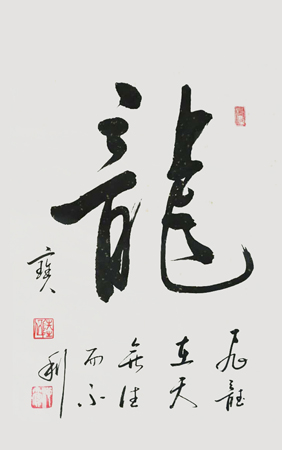 龍
飛龍
在天
無往
而不
利